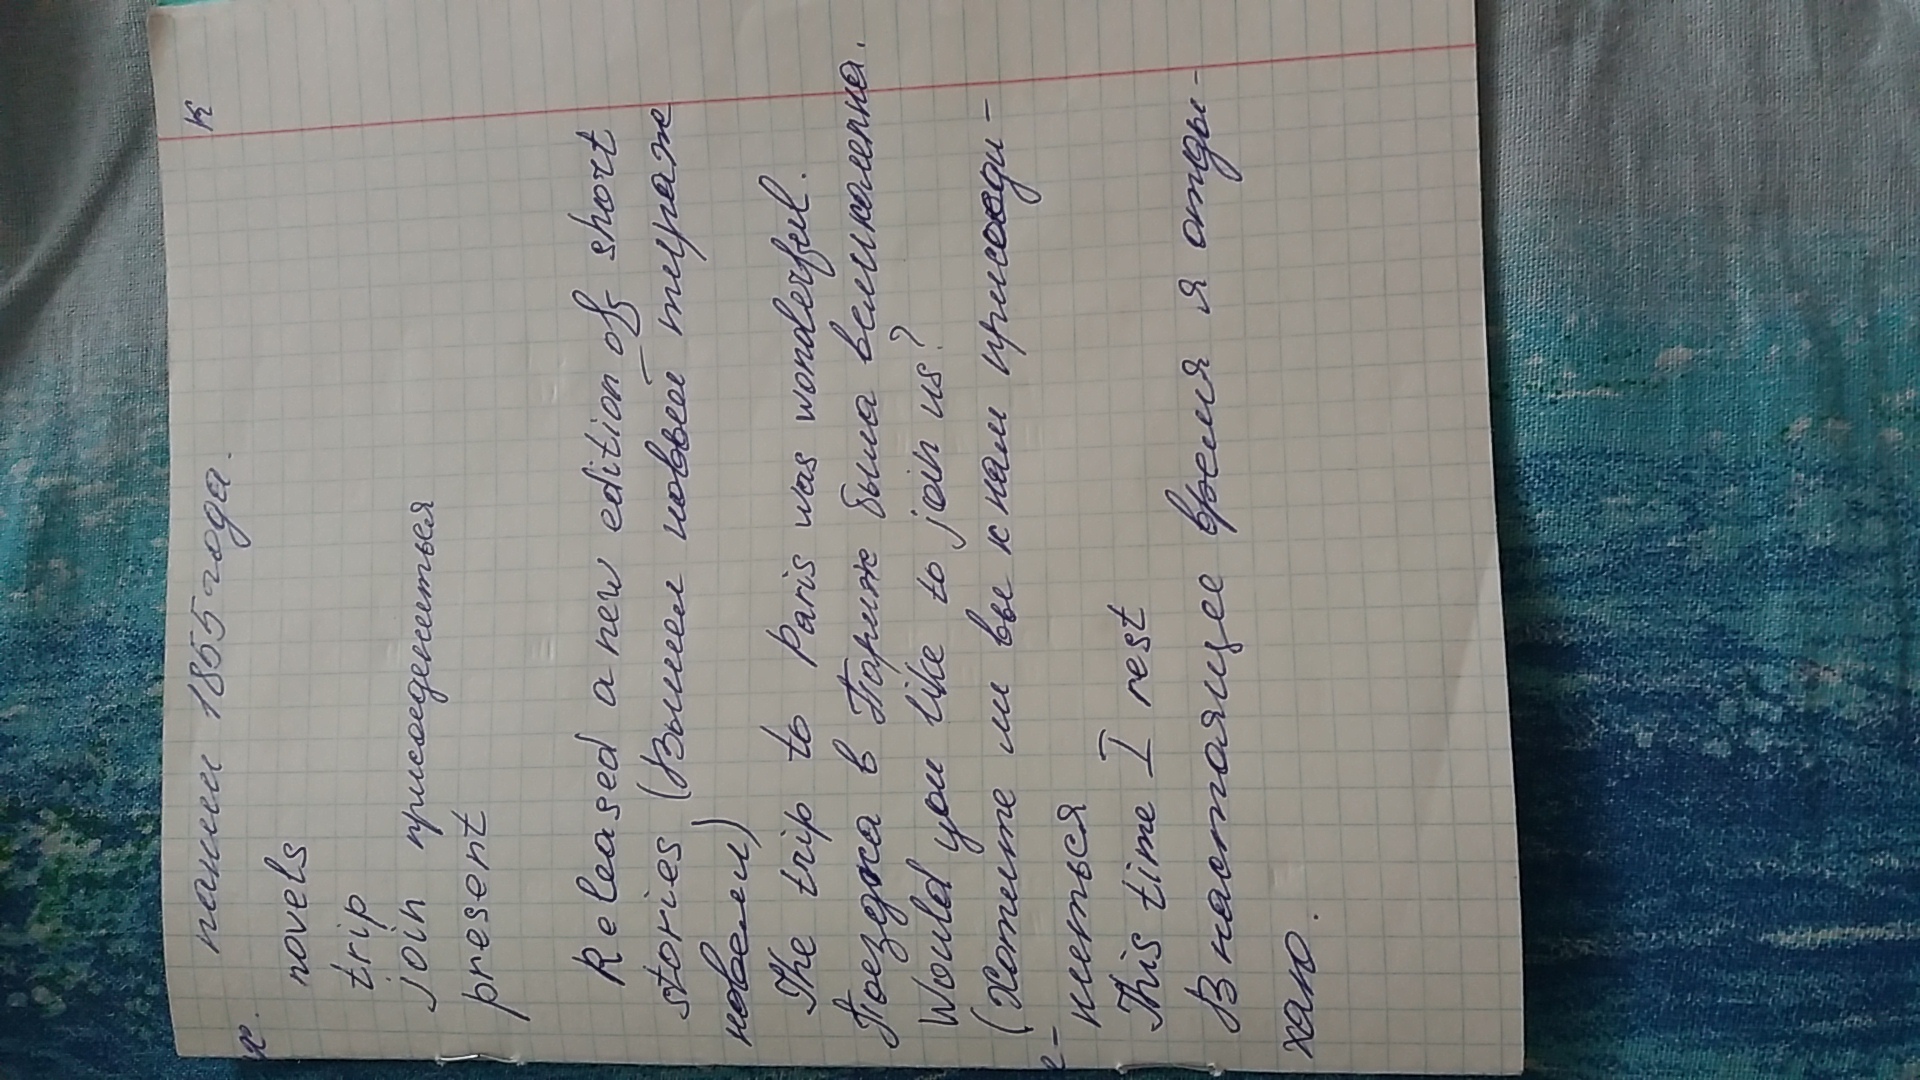 пании 1855 года.
к
novels
trip
join присоединиться
present
Released a new edition of short
stories (Вышел новый тираж
новелл)
The trip to Paris was wonderful.
Поездка в Париж была великолепна.
Would you like to join us?
(Хотите ли вы к нам присоеди-
ниться
This time I rest
В настоящее время я отды-
хаю.